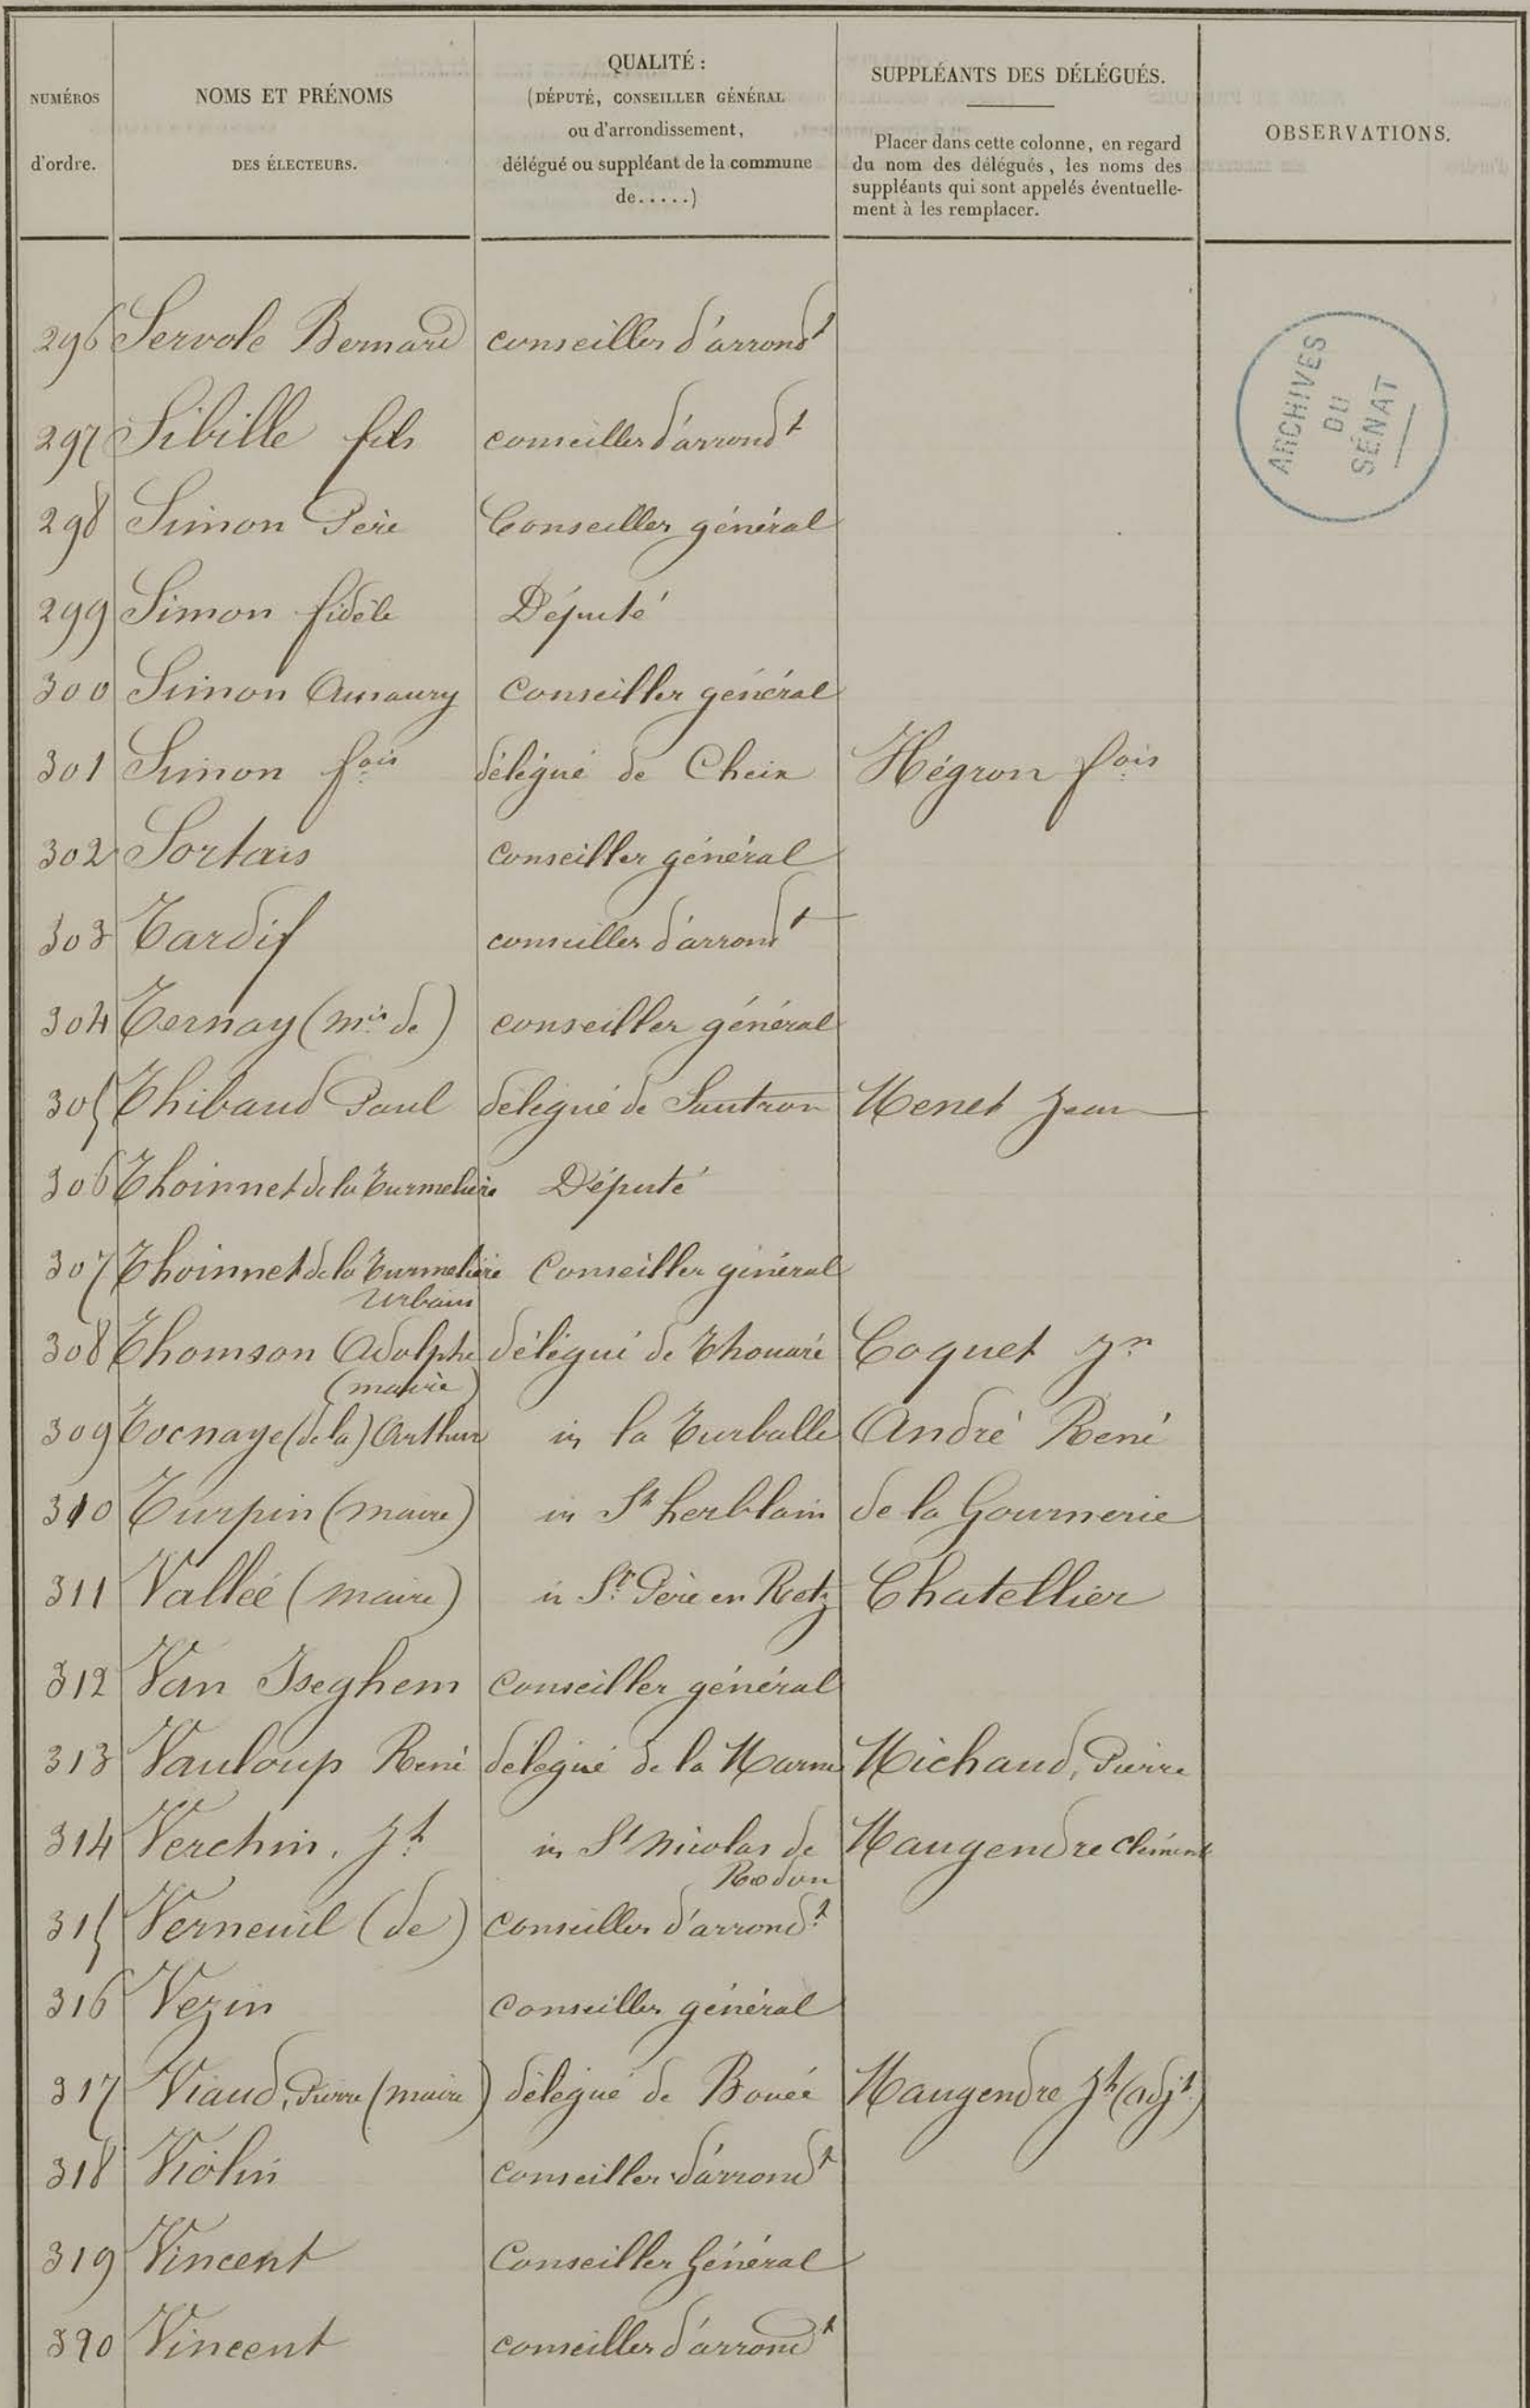 NUMÉROS
d'ordre.
NOMS ET PRÉNOMS
DES ÉLECTEURS.
QUALITÉ :
(DÉPUTÉ, CONSEILLER GÉNÉRAL
ou d'arrondissement,
délégué ou suppléant de la commune
de.....)
SUPPLÉANTS DES DÉLÉGUÉS.
Placer dans cette colonne, en regard
du nom des délégués, les noms des
suppléants qui sont appelés éventuelle-
ment à les remplacer.
OBSERVATIONS.
296 Servole Bernard conseiller d'arrondt
297 Sibille fils conseiller d'arrondt
298 Simon Père Conseiller général
299 Simon fidèle Député
300 Simon Amaury Conseiller général
301 Simon fois délégué de Cheix Hégron fois
302 Sortais Conseiller général
303 Tardif conseiller d'arrondt
304 Ternay (mis de) conseiller général
305 Thibaud Paul délégué de Sautron Menet Jean
306 Thoinnet de la Turmelière Député
307 Thoinnet de la Turmelière Conseiller général
Urbain
308 Thomson Adolphe délégué de Thouaré Coquet Jn
(maire)
309 Tocnaye (de la) Arthur id la Turballe André René
310 Turpin (maire) id St herblain de la Gournerie
311 Vallée (maire) id St Père en Retz Chatellier
312 Van Iseghem Conseiller général
313 Vauloup René délégué de la Marne Michaud, Pierre
314 Verchin, Jh id St Nicolas de Maugendre Clément
Redon
315 Verneuil (de) Conseiller d'arrondt
316 Vezin Conseiller général
317 Viaud, Pierre (maire) délégué de Bouée Maugendre Jh (adjt)
318 Violin conseiller d'arrondt
319 Vincent Conseiller Général
320 Vincent conseiller d'arrondt
ARCHIVES
DU
SÉNAT